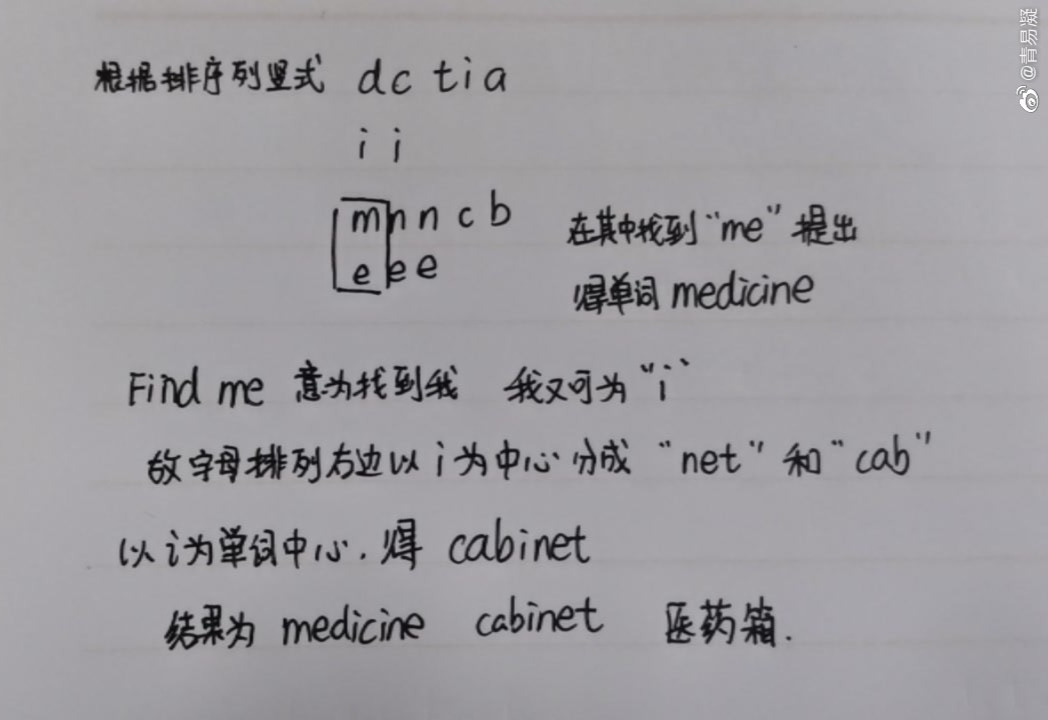 根据排序列竖式 dc tia
i i
mnncb 在其中找到“me”提出
eee 得单词 medicine
Find me 意为找到我 我又可为“i”
故字母排列右边以i为中心分成“net”和“cab”
以i为单词中心.得 cabinet
结果为 medicine cabinet 医药箱.
@青易凝